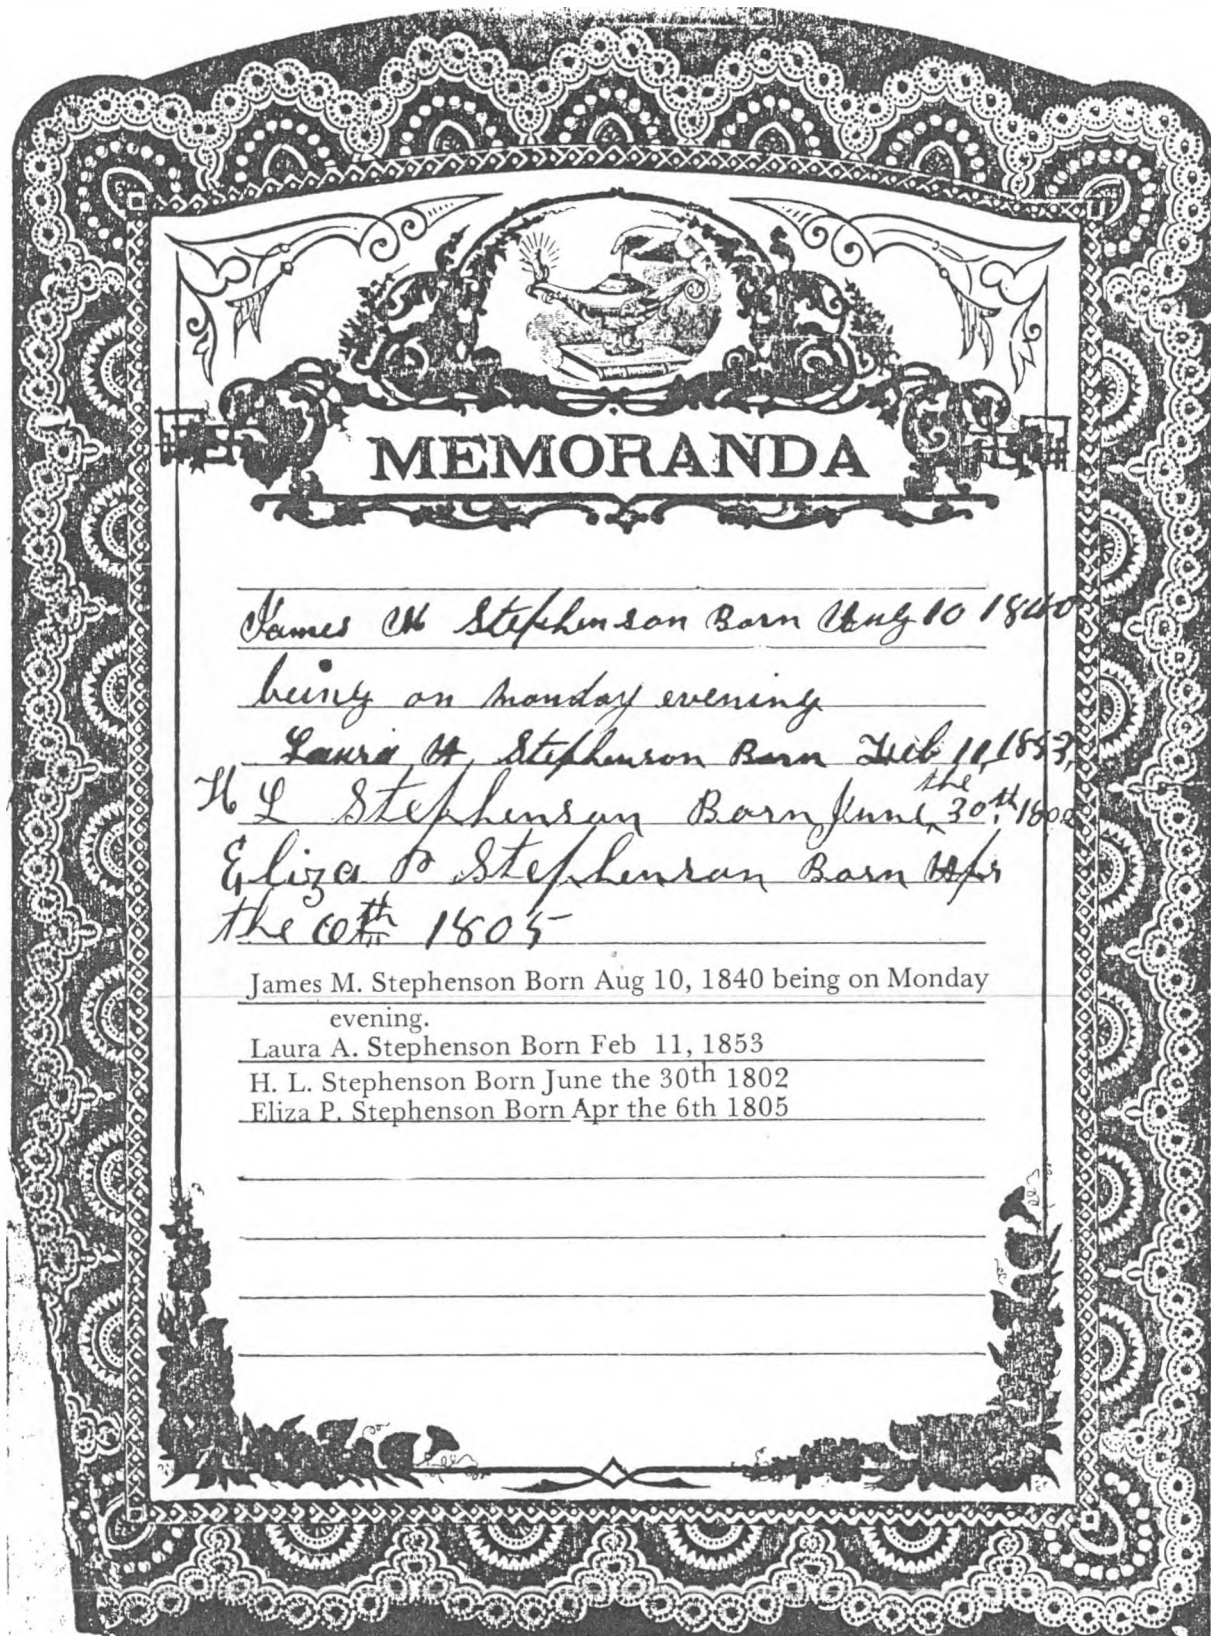 MEMORANDA
James M Stephenson Born Aug 10 1840
being on monday evening
Laura A. Stephenson Born Feb 11, 1853,
H L Stephenson Born June the 30th. 1802
Eliza P Stephenson Born Apr
the 6th 1805
James M. Stephenson Born Aug 10, 1840 being on Monday
evening.
Laura A. Stephenson Born Feb 11, 1853
H. L. Stephenson Born June the 30th 1802
Eliza P. Stephenson Born Apr the 6th 1805